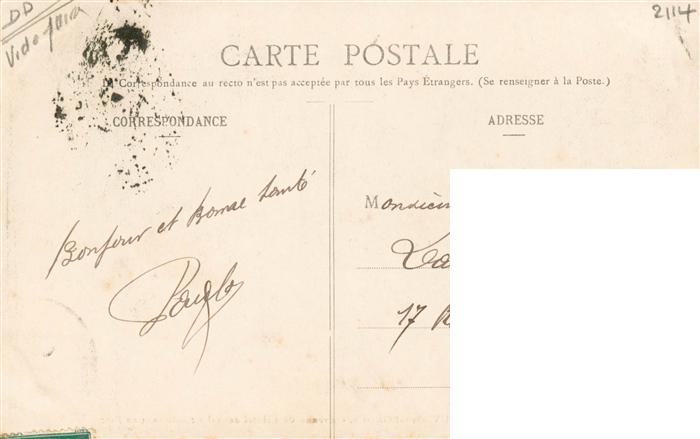 DD
2114
CARTE POSTALE
La Correspondance au recto n'est pas acceptée par tous les Pays Étrangers. (Se renseigner à la Poste.)
CORRESPONDANCE
ADRESSE
Bonjour et Bonne Santé
Monsieur
17